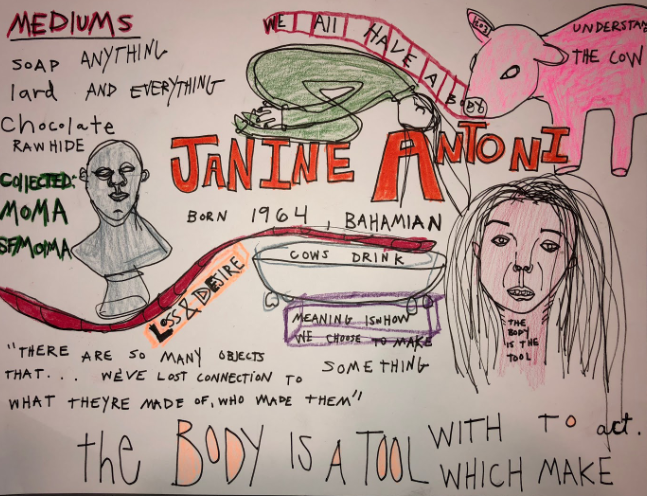 MEDIUMS
SOAP ANYTHING
lard AND EVERYTHING
Chocolate
RAWHIDE
COllECTED:
MOMA
SFMOMA
WE All HAVE A BODY
UNDERSTAND
THE COW
JANINE ANTONI
BORN 1964, BAHAMIAN
LOSS & DESIRE
COWS DRINK
MEANING IS HOW
WE CHOOSE TO MAKE
SOMETHING
THE
BODY
IS THE
TOOL
"THERE ARE SO MANY OBJECTS
THAT... WE'VE LOST CONNECTION TO
WHAT THEYRE MADE OF, WHO MADE THEM"
the BODY IS A TOOL WITH TO act.
WHICH MAKE